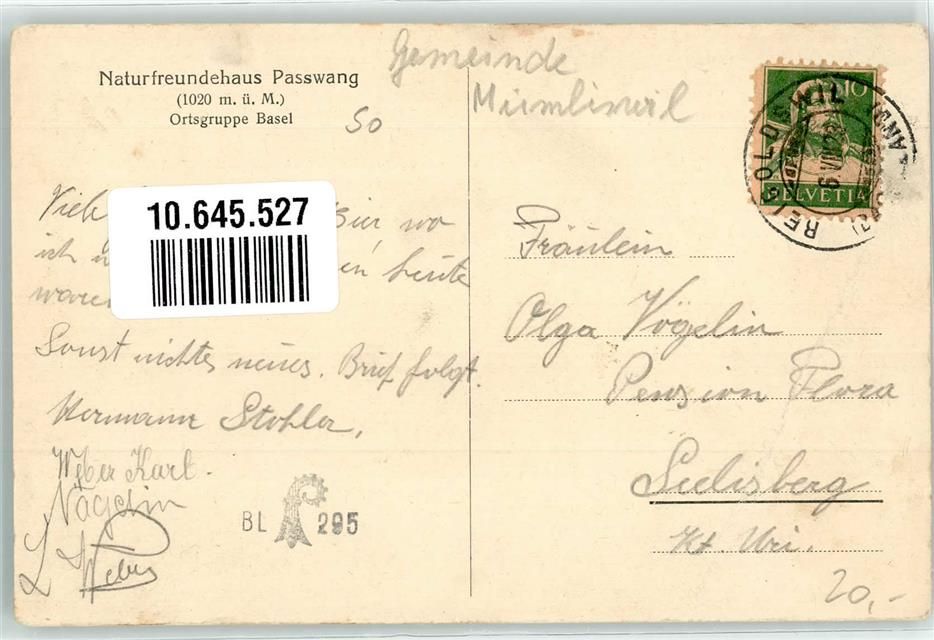 Naturfreundehaus Passwang
(1020 m. ü. M.)
Ortsgruppe Basel
SO
Gemeinde
Mümliswil
10
HELVETIA
REIGOLDSWIL
6 VII
10.645.527
Viele wo
ich heute
waren
Sonst nichts neues. Brief folgt.
Hermann Stohler,
Weber Karl.
Nägelin
L Weber
BL 295
Fräulein
Olga Vögelin
Pension Flora
Seelisberg
Kt. Uri.
20,-